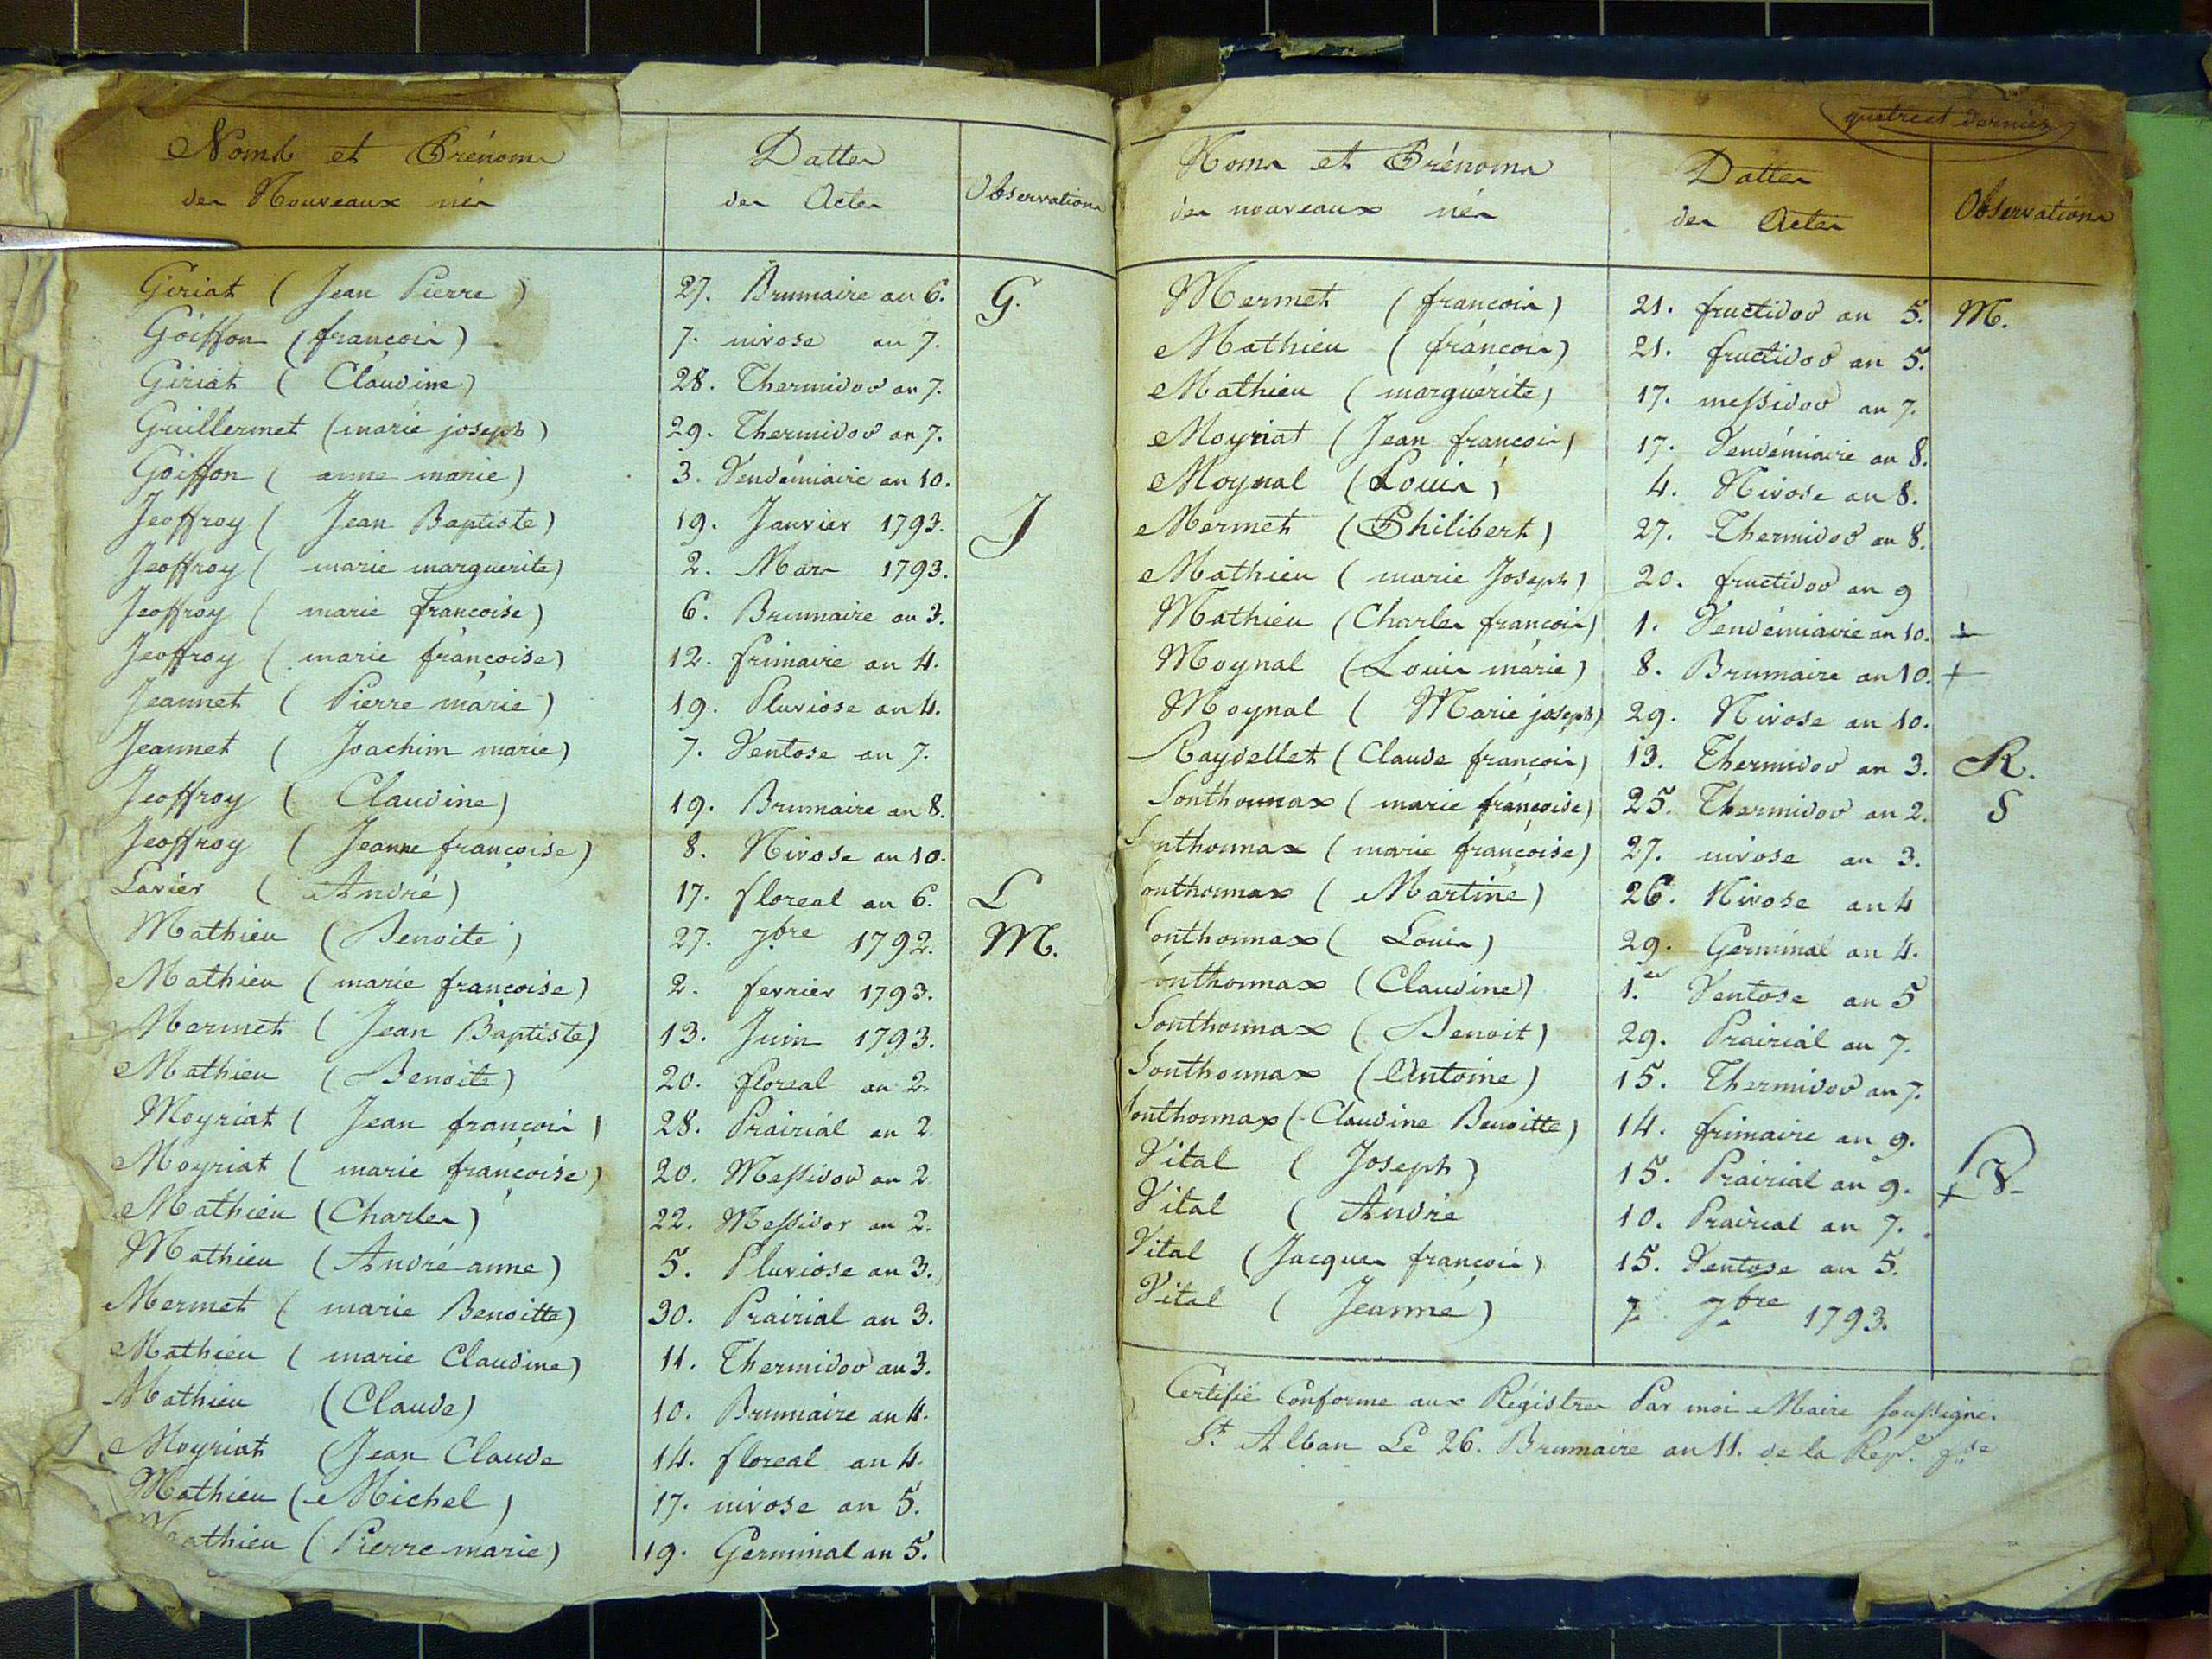 Noms et Prénoms
des Nouveaux nés
Dattes
des Actes
Observations
Giriat ( Jean Pierre ) 27. Brumaire an 6. G.
Goiffon ( françois ) 7. nivose an 7.
Giriat ( Claudine ) 28. Thermidor an 7.
Guillermet ( marie joseph ) 29. Thermidor an 7.
Goiffon ( anne marie ) 3. Vendémiaire an 10.
Jeoffroy ( Jean Baptiste ) 19. Janvier 1793. J
Jeoffroy ( marie marguerite ) 2. Mars 1793.
Jeoffroy ( marie françoise ) 6. Brumaire an 3.
Jeoffroy ( marie françoise ) 12. frimaire an 4.
Jeannet ( Pierre marie ) 19. Pluviose an 4.
Jeannet ( Joachim marie ) 7. Ventose an 7.
Jeoffroy ( Claudine ) 19. Brumaire an 8.
Jeoffroy ( Jeanne françoise ) 8. Nivose an 10.
Lavier ( André ) 17. floreal an 6. L
Mathieu ( Benoite ) 27. 7.bre 1792. M.
Mathieu ( marie françoise ) 2. fevrier 1793.
Mermet ( Jean Baptiste ) 13. Juin 1793.
Mathieu ( Benoite ) 20. floreal an 2.
Moyriat ( Jean françois ) 28. Prairial an 2.
Moyriat ( marie françoise ) 20. Messidor an 2.
Mathieu ( Charles ) 22. Messidor an 2.
Mathieu ( André anne ) 5. Pluviose an 3.
Mermet ( marie Benoitte ) 30. Prairial an 3.
Mathieu ( marie Claudine ) 11. Thermidor an 3.
Mathieu ( Claude ) 10. Brumaire an 4.
Moyriat ( Jean Claude 14. floreal an 4.
Mathieu ( Michel ) 17. nivose an 5.
Mathieu ( Pierre marie ) 19. Germinal an 5.
quatre et dernier
Noms et Prénoms
des nouveaux nés
Dattes
des Actes
Observations
Mermet ( françois ) 21. fructidor an 5. M.
Mathieu ( françois ) 21. fructidor an 5.
Mathieu ( marguérite ) 17. messidor an 7.
Moyriat ( Jean françois ) 17. Vendémiaire an 8.
Moynal ( Louis ) 4. Nivose an 8.
Mermet ( Philibert ) 27. Thermidor an 8.
Mathieu ( marie Joseph ) 20. fructidor an 9
Mathieu ( Charles françois ) 1. Vendémiaire an 10. +
Moynal ( Louis marie ) 8. Brumaire an 10. +
Moynal ( Marie joseph ) 29. Nivose an 10.
Raydellet ( Claude françois ) 13. Thermidor an 3. R.
Sonthonnax ( marie françoise ) 25. Thermidor an 2. S
Sonthonnax ( marie françoise ) 27. nivose an 3.
Sonthonnax ( Martine ) 26. Nivose an 4
Sonthonnax ( Louis ) 29. Germinal an 4.
Sonthonnax ( Claudine ) 1.er Ventose an 5
Sonthonnax ( Benoit ) 29. Prairial an 7.
Sonthonnax ( Antoine ) 15. Thermidor an 7.
Sonthonnax ( Claudine Benoitte ) 14. frimaire an 9.
Vital ( Joseph ) 15. Prairial an 9. + V.
Vital ( André 10. Prairial an 7.
Vital ( Jacques françois ) 15. Ventose an 5.
Vital ( Jeanne ) 7 7.bre 1793.
Certifié Conforme aux Régistres Par moi Maire soussigné.
St. Alban Le 26. Brumaire an 11. de la Rep.e f.se